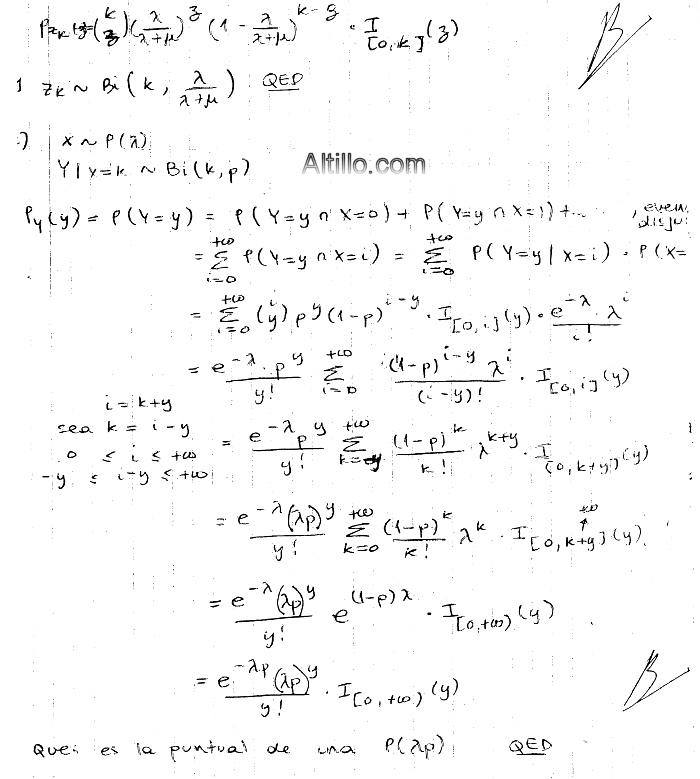 P_{Z_K}(z) = \binom{k}{z} (λ/(λ+μ))^z (1 - λ/(λ+μ))^{k-z} · I_{[0,k]}(z)
B
1 Z_K ~ Bi(k, λ/(λ+μ)) QED
:) X ~ P(λ)
Y|X=k ~ Bi(k,p)
Altillo.com
P_Y(y) = P(Y=y) = P(Y=y ∩ X=0) + P(Y=y ∩ X=1) + ..., even
disju
= Σ_{i=0}^{+∞} P(Y=y ∩ X=i) = Σ_{i=0}^{+∞} P(Y=y | X=i) · P(X=
= Σ_{i=0}^{+∞} \binom{i}{y} p^y (1-p)^{i-y} · I_{[0,i]}(y) · e^{-λ} · λ^i / i!
= e^{-λ} · p^y / y! Σ_{i=0}^{+∞} (1-p)^{i-y} λ^i / (i-y)! · I_{[0,i]}(y)
i = k+y
sea k = i-y
0 ≤ i ≤ +∞
-y ≤ i-y ≤ +∞
= e^{-λ} p^y / y! Σ_{k=-y}^{+∞} (1-p)^k / k! λ^{k+y} · I_{[0,k+y]}(y)
= e^{-λ} (λp)^y / y! Σ_{k=0}^{+∞} (1-p)^k / k! λ^k · I_{[0,k+y]}(y)
+∞
↑
= e^{-λ} (λp)^y / y! e^{(1-p)λ} · I_{[0,+∞)}(y)
= e^{-λp} (λp)^y / y! · I_{[0,+∞)}(y)
B
Que es la puntual de una P(λp) QED